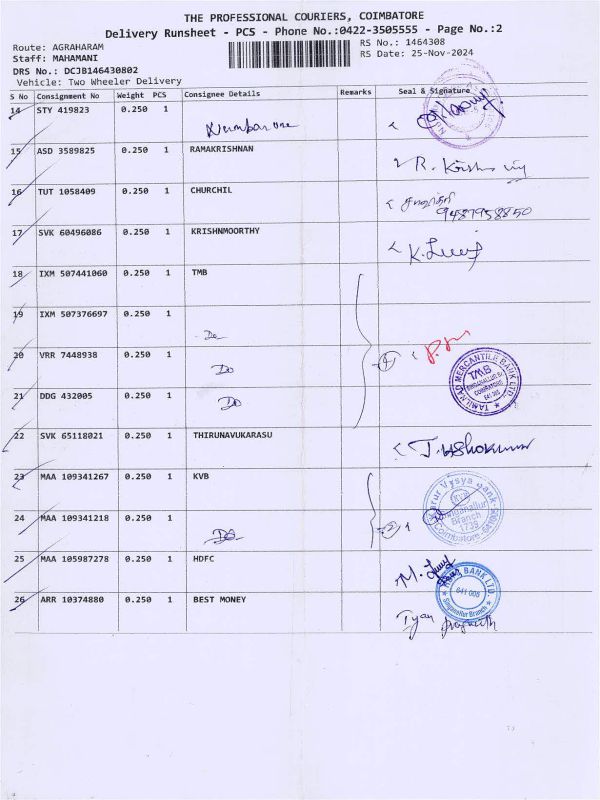 THE PROFESSIONAL COURIERS, COIMBATORE
Delivery Runsheet - PCS - Phone No.:0422-3505555 - Page No.:2
Route: AGRAHARAM
RS No.: 1464308
Staff: MAHAMANI
RS Date: 25-Nov-2024
DRS No.: DCJB146430802
Vehicle: Two Wheeler Delivery
S No Consignment No Weight PCS Consignee Details Remarks Seal & Signature
14 STY 419823 0.250 1
15 ASD 3589825 0.250 1 RAMAKRISHNAN R.
16 TUT 1058409 0.250 1 CHURCHIL
9487958850
17 SVK 60496086 0.250 1 KRISHNMOORTHY K.
18 IXM 507441060 0.250 1 TMB
19 IXM 507376697 0.250 1 Do
20 VRR 7448938 0.250 1 Do 4
TAMILNAD MERCANTILE BANK LTD.
TMB
21 DDG 432005 0.250 1 Do
22 SVK 65118021 0.250 1 THIRUNAVUKARASU
23 MAA 109341267 0.250 1 KVB
Karur Vysya Bank
KVB
Singanallur
Branch
1739
Coimbatore
24 MAA 109341218 0.250 1 Do 2
25 MAA 105987278 0.250 1 HDFC M.
BANK LTD.
641 005
Singanallur Branch
26 ARR 10374880 0.250 1 BEST MONEY